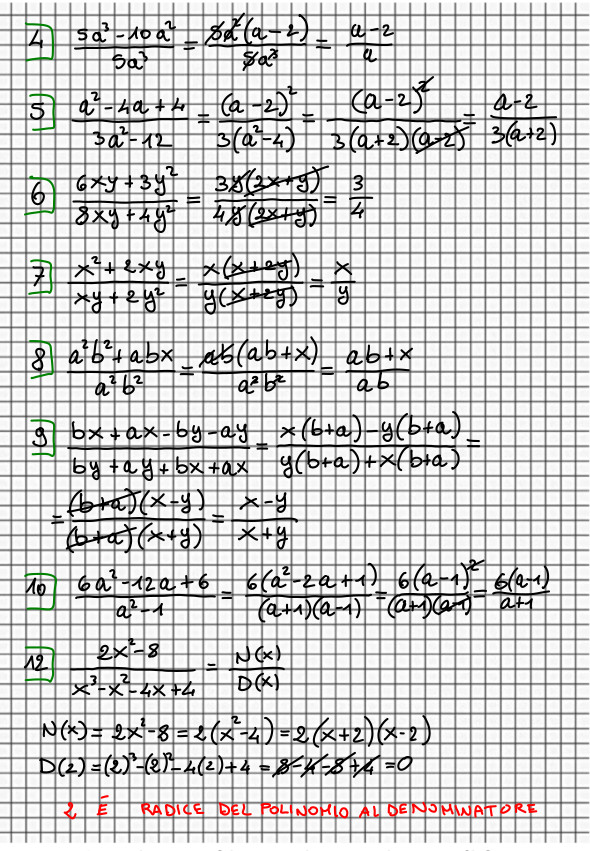 4 (5a³-10a²)/(5a³) = (5a²(a-2))/(5a³) = (a-2)/a
5 (a²-4a+4)/(3a²-12) = (a-2)²/(3(a²-4)) = (a-2)²/(3(a+2)(a-2)) = (a-2)/(3(a+2))
6 (6xy+3y²)/(8xy+4y²) = (3y(2x+y))/(4y(2x+y)) = 3/4
7 (x²+2xy)/(xy+2y²) = (x(x+2y))/(y(x+2y)) = x/y
8 (a²b²+abx)/(a²b²) = (ab(ab+x))/(a²b²) = (ab+x)/(ab)
9 (bx+ax-by-ay)/(by+ay+bx+ax) = (x(b+a)-y(b+a))/(y(b+a)+x(b+a)) =
= ((b+a)(x-y))/((b+a)(x+y)) = (x-y)/(x+y)
10 (6a²-12a+6)/(a²-1) = (6(a²-2a+1))/((a+1)(a-1)) = (6(a-1)²)/((a+1)(a-1)) = (6(a-1))/(a+1)
12 (2x²-8)/(x³-x²-4x+4) = N(x)/D(x)
N(x) = 2x²-8 = 2(x²-4) = 2(x+2)(x-2)
D(2) = (2)³-(2)²-4(2)+4 = 8-4-8+4 = 0
2 È RADICE DEL POLINOMIO AL DENOMINATORE